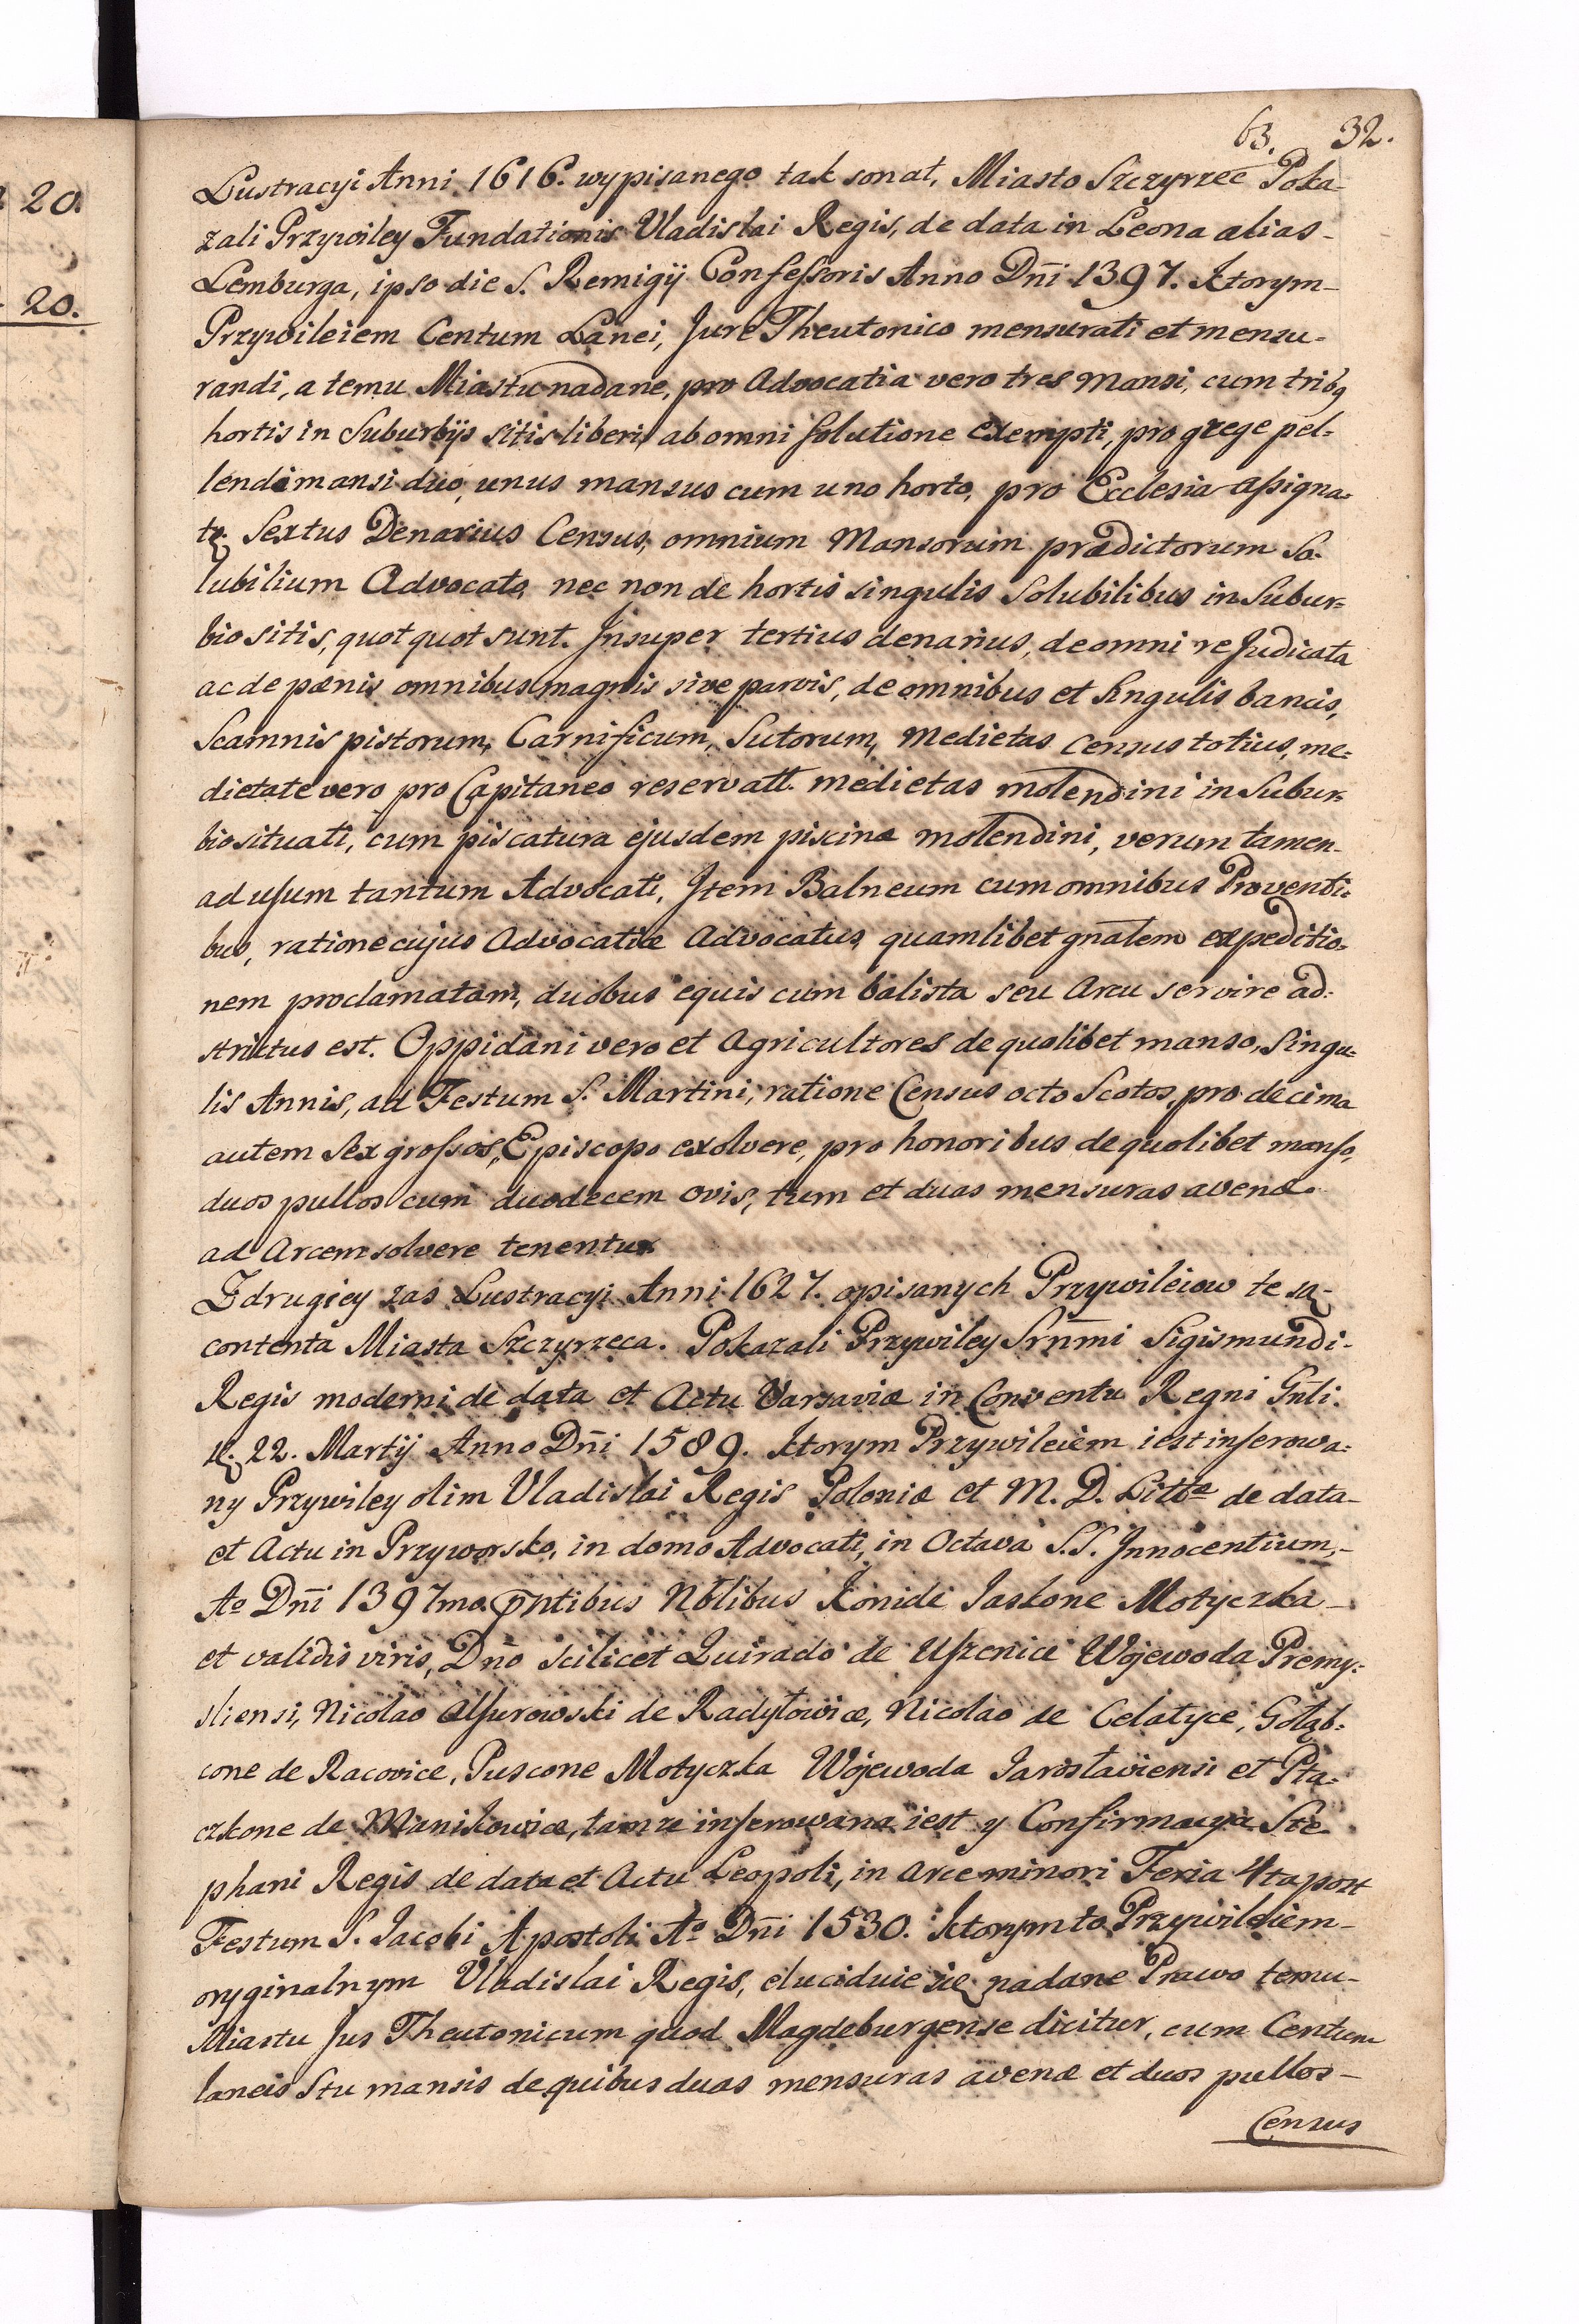 63. 32.
Lustracyi Anni 1616. wypisanego tak sonat, Miasto Szczyrzec Poka-
zali Przywiley Fundationis Vladislai Regis, de data in Leona alias-
Lemburga, ipso die S. Remigij Confessoris Anno Dñi 1397. Ktorym-
Przywileiem Centum Lanei, Jure Theutonico mensurati et mensu-
randi, a temu Miastu nadane, pro Advocatia vero tres mansi, cum tribq
hortis in Suburbijs sitis liberi, ab omni solutione exempti, pro grege pel=
lendo mansi duo, unus mansus cum uno horto, pro Ecclesia assigna=
tq. Sextus Denarius Census, omnium Mansorum prædictorum So-
lubilium Advocato, nec non de hortis singulis Solubilibus in Subur=
bio sitis, quot quot sunt. Insuper tertius denarius, de omni re Judicata
ac de pœnis omnibus magnis sive parvis, de omnibus et singulis bancis,
Scamnis pistorum, Carnificum, Sutorum, medietas census totius, me=
dietate vero pro Capitaneo reservatt. medietas molendini in Subur=
bio situati, cum piscatura ejusdem piscinæ molendini, verum tamen-
ad usum tantum Advocati, Item Balneum cum omnibus Proventi=
bus, ratione cujus Advocatiæ Advocatus, quamlibet gnalem expeditio=
nem proclamatam, duobus equis cum balista seu Arcu servire ad=
strictus est. Oppidani vero et Agricultores de quolibet manso, Singu=
lis Annis, ad Festum S. Martini, ratione Census octo Scotos, pro decima
autem sex grossos, Episcopo exolvere, pro honoribus de quolibet manso,
duos pullos cum duodecem ovis, tum et duas mensuras avenæ.
ad Arcem solvere tenentur.
Z drugiey zas Lustracyi Anni 1627. opisanych Przywileiow te są-
contenta Miasta Szczyrzeca. Pokazali Przywiley Srñmi Sigismundi-
Regis moderni de data et Actu Varsaviæ in Conventu Regni Gñli.
22. Martij Anno Dñi 1589. Ktorym Przywileiem iest inserowa=
ny Przywiley olim Vladislai Regis Poloniæ et M. D. Littæ de data-
et Actu in Przyworsko, in domo Advocati, in Octava S.S. Innocentium,-
Aº Dñi 1397mo. pntibus Nblibus Konide Jaskone Motyczka-
et validis viris, Dño scilicet Quirado de Uszenice Wojewoda Premy=
sliensi, Nicolao Ossurowski de Radyłowicæ, Nicolao de Celatyce, Gołąb=
cone de Racovice, Puscone Motyczka Wojewoda Jarosłaviensi et Pta=
czkone de Manikowice, tamze inserowana iest y Confirmacya Ste-
phani Regis de data et Actu Leopoli, in arce minori Feria 4ta post
Festum S. Jacobi Apostoli Aº Dñi 1530. Ktorym to Przywileiem-
oryginalnym Vladislai Regis, eluciduie się nadane Prawo temu-
Miastu Jus Theutonicum quod Magdeburgense dicitur, cum Centum
laneis Stu mansis de quibus duas mensuras avenæ et duos pullos-
Census
20.
20.